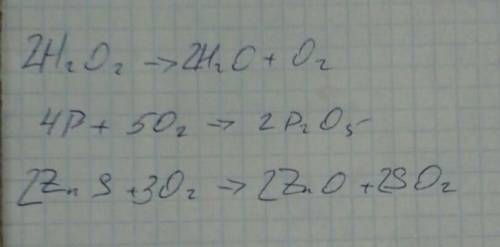 2H₂O₂ → 2H₂O + O₂
4P + 5O₂ → 2P₂O₅
2ZnS + 3O₂ → 2ZnO + 2SO₂